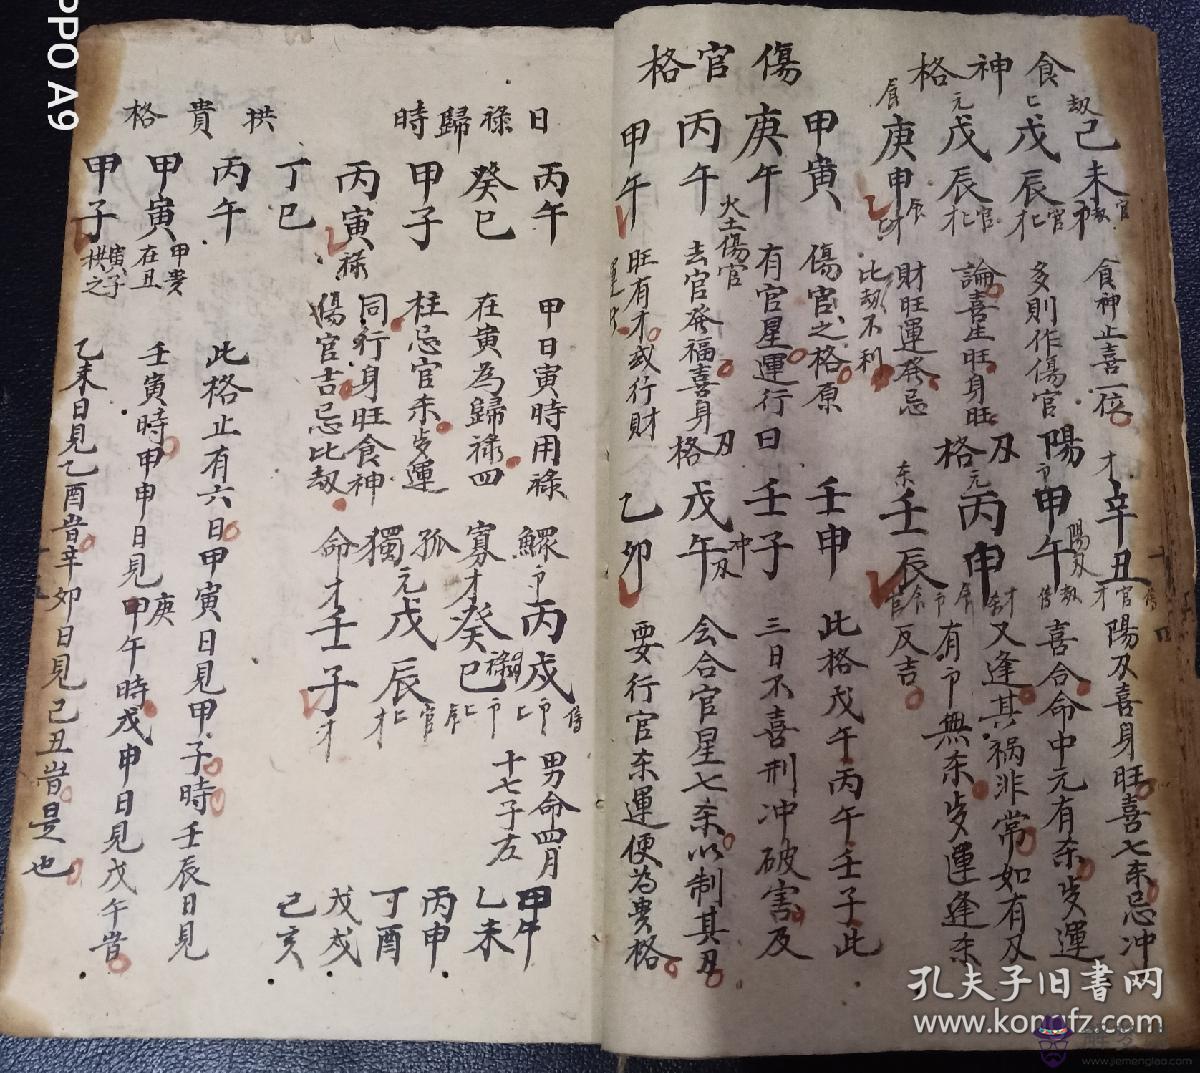 食神格
己未
戊辰
戊辰
庚申
食神止喜一位
多則作傷官
論喜生旺身旺
財旺運發忌
比劫不利
傷官格
甲寅
庚午
丙午
甲午
火土傷官
傷官之格原
有官星運行
去官發福喜身
旺有才或行財
陽刃格
辛丑
甲午
丙申
壬辰
陽刃喜身旺喜七杀忌冲
喜合命中元有杀岁運
又逢其祸非常如有刃
有卩無杀岁運逢杀
反吉
日刃格
壬申
壬子
戊午
乙卯
此格戊午丙午壬子此
三日不喜刑冲破害及
会合官星七杀以制其刃
要行官杀運便為貴格
日祿歸時
丙午
癸巳
甲子
丙寅
祿
甲日寅時用祿
在寅為歸祿四
柱忌官杀岁運
同行身旺食神
傷官吉忌比劫
鰥寡孤獨命
丙戌
癸巳
戊辰
壬子
男命四月
十七子左
甲午
乙未
丙申
丁酉
戊戌
己亥
拱貴格
丁巳
丙午
甲寅
甲子
甲貴
在丑
寅子
拱之
此格止有六日甲寅日見甲子時壬辰日見
壬寅時甲申日見甲午時戊申日見戊午時
乙未日見乙酉時辛卯日見己丑時是也
孔夫子旧书网
www.kongfz.com
www.jiemenglao.com
OPPO A9